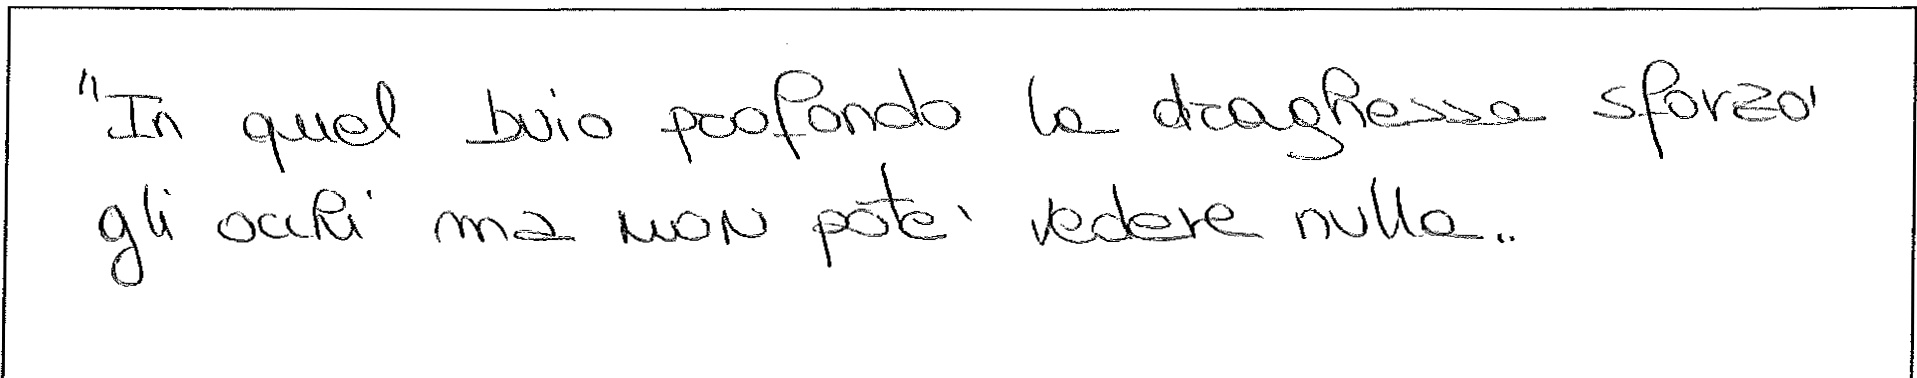 "In quel buio profondo la draghessa sforzo'
gli occhi ma non pote' vedere nulla..